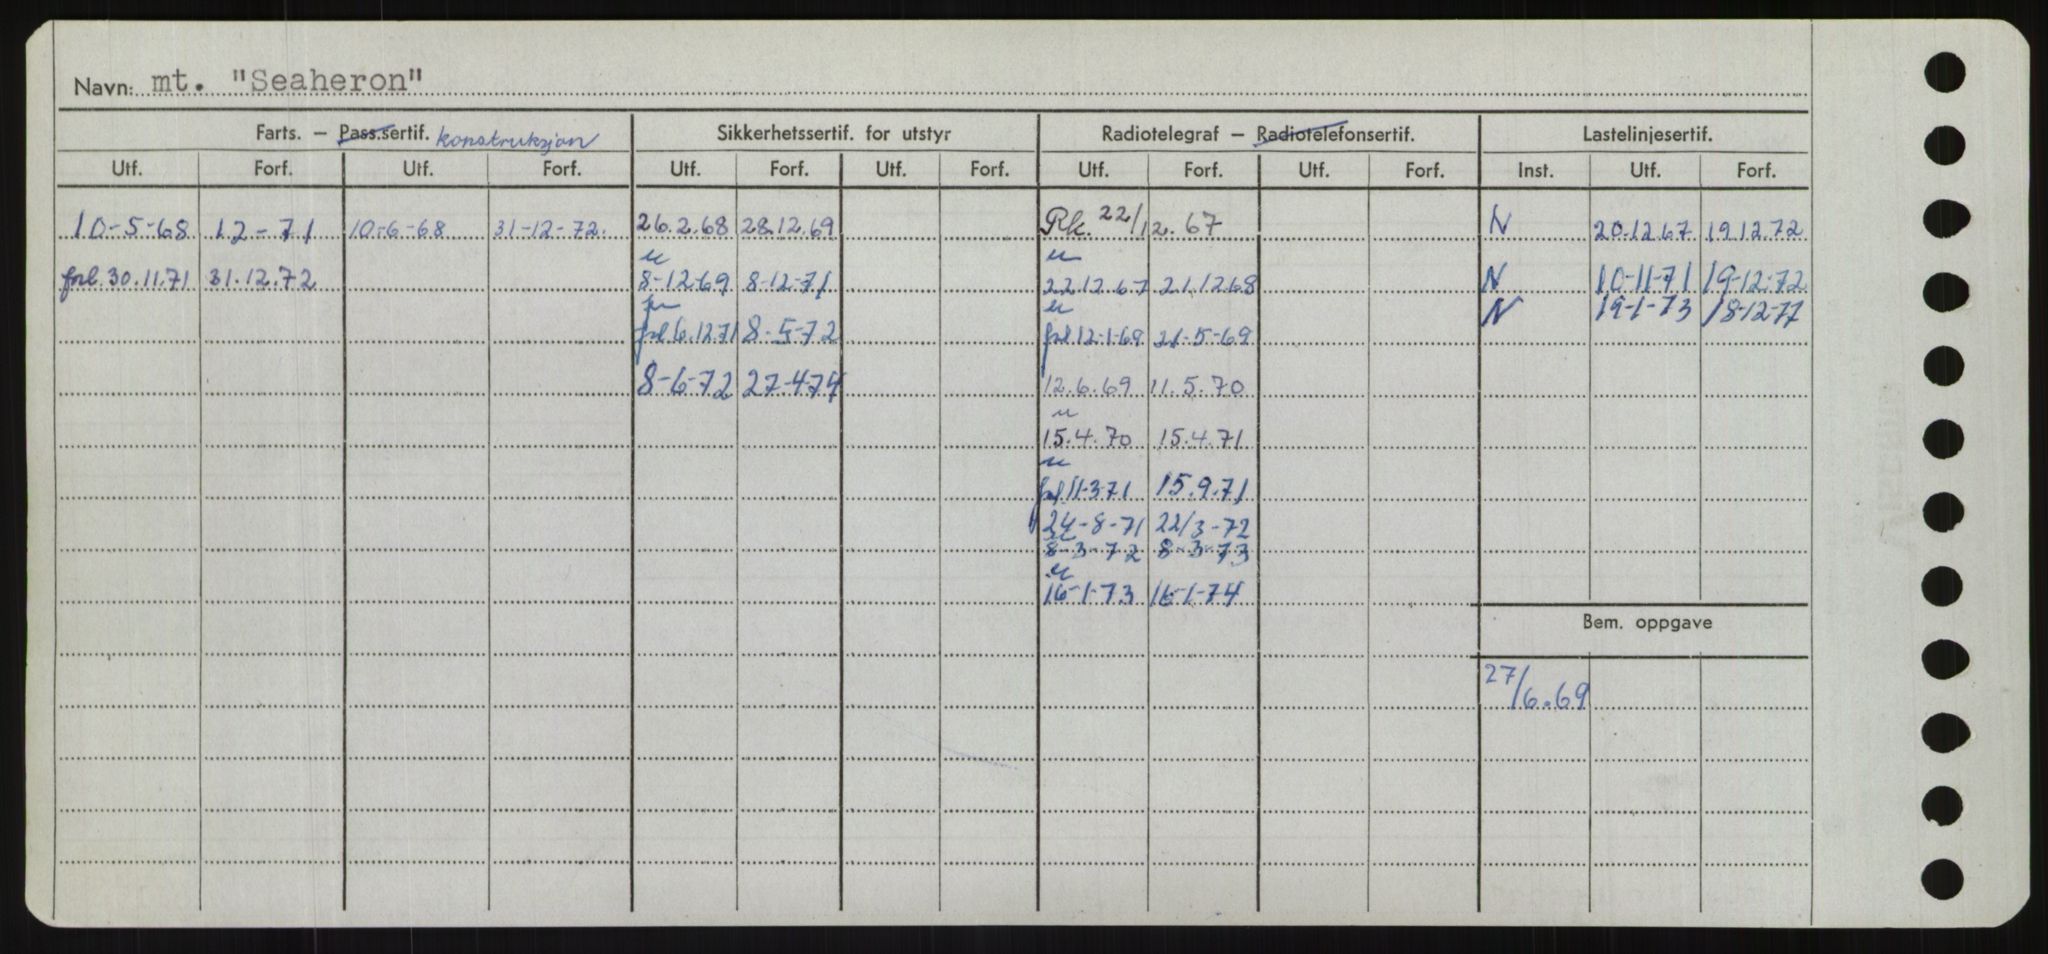 Navn: mt. "Seaheron"
Farts. – Pass.sertif. konstruksjon Sikkerhetssertif. for utstyr Radiotelegraf – Radiotelefonsertif. Lastelinjesertif.
Utf. Forf. Utf. Forf. Utf. Forf. Utf. Forf. Utf. Forf. Utf. Forf. Inst. Utf. Forf.
10-5-68 12-71 10-6-68 31-12-72. 26.2.68 28.12.69 Rk. 22/12.67 N 20.12.67 19.12.72
forl. 30.11.71 31.12.72 8-12-69 8-12-71 22.12.67 21.12.68 N 10-11-71 19-12-72
N 19-1-73 18-12-77
forl 6.12.71 8-5-72 forl 12-1-69 21-5-69
8-6-72 27-4-74 12.6.69 11.5.70
15.4.70 15.4.71
forl 11-3-71 15.9.71
24-8-71 22/3-72
8-3-72 8-3-73
16-1-73 16-1-74
Bem. oppgave
27/6.69